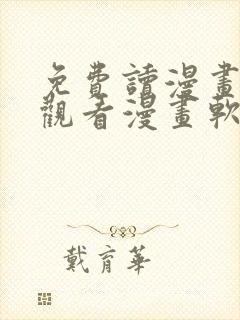 免費讀漫畫
觀看漫畫軟
戴育華